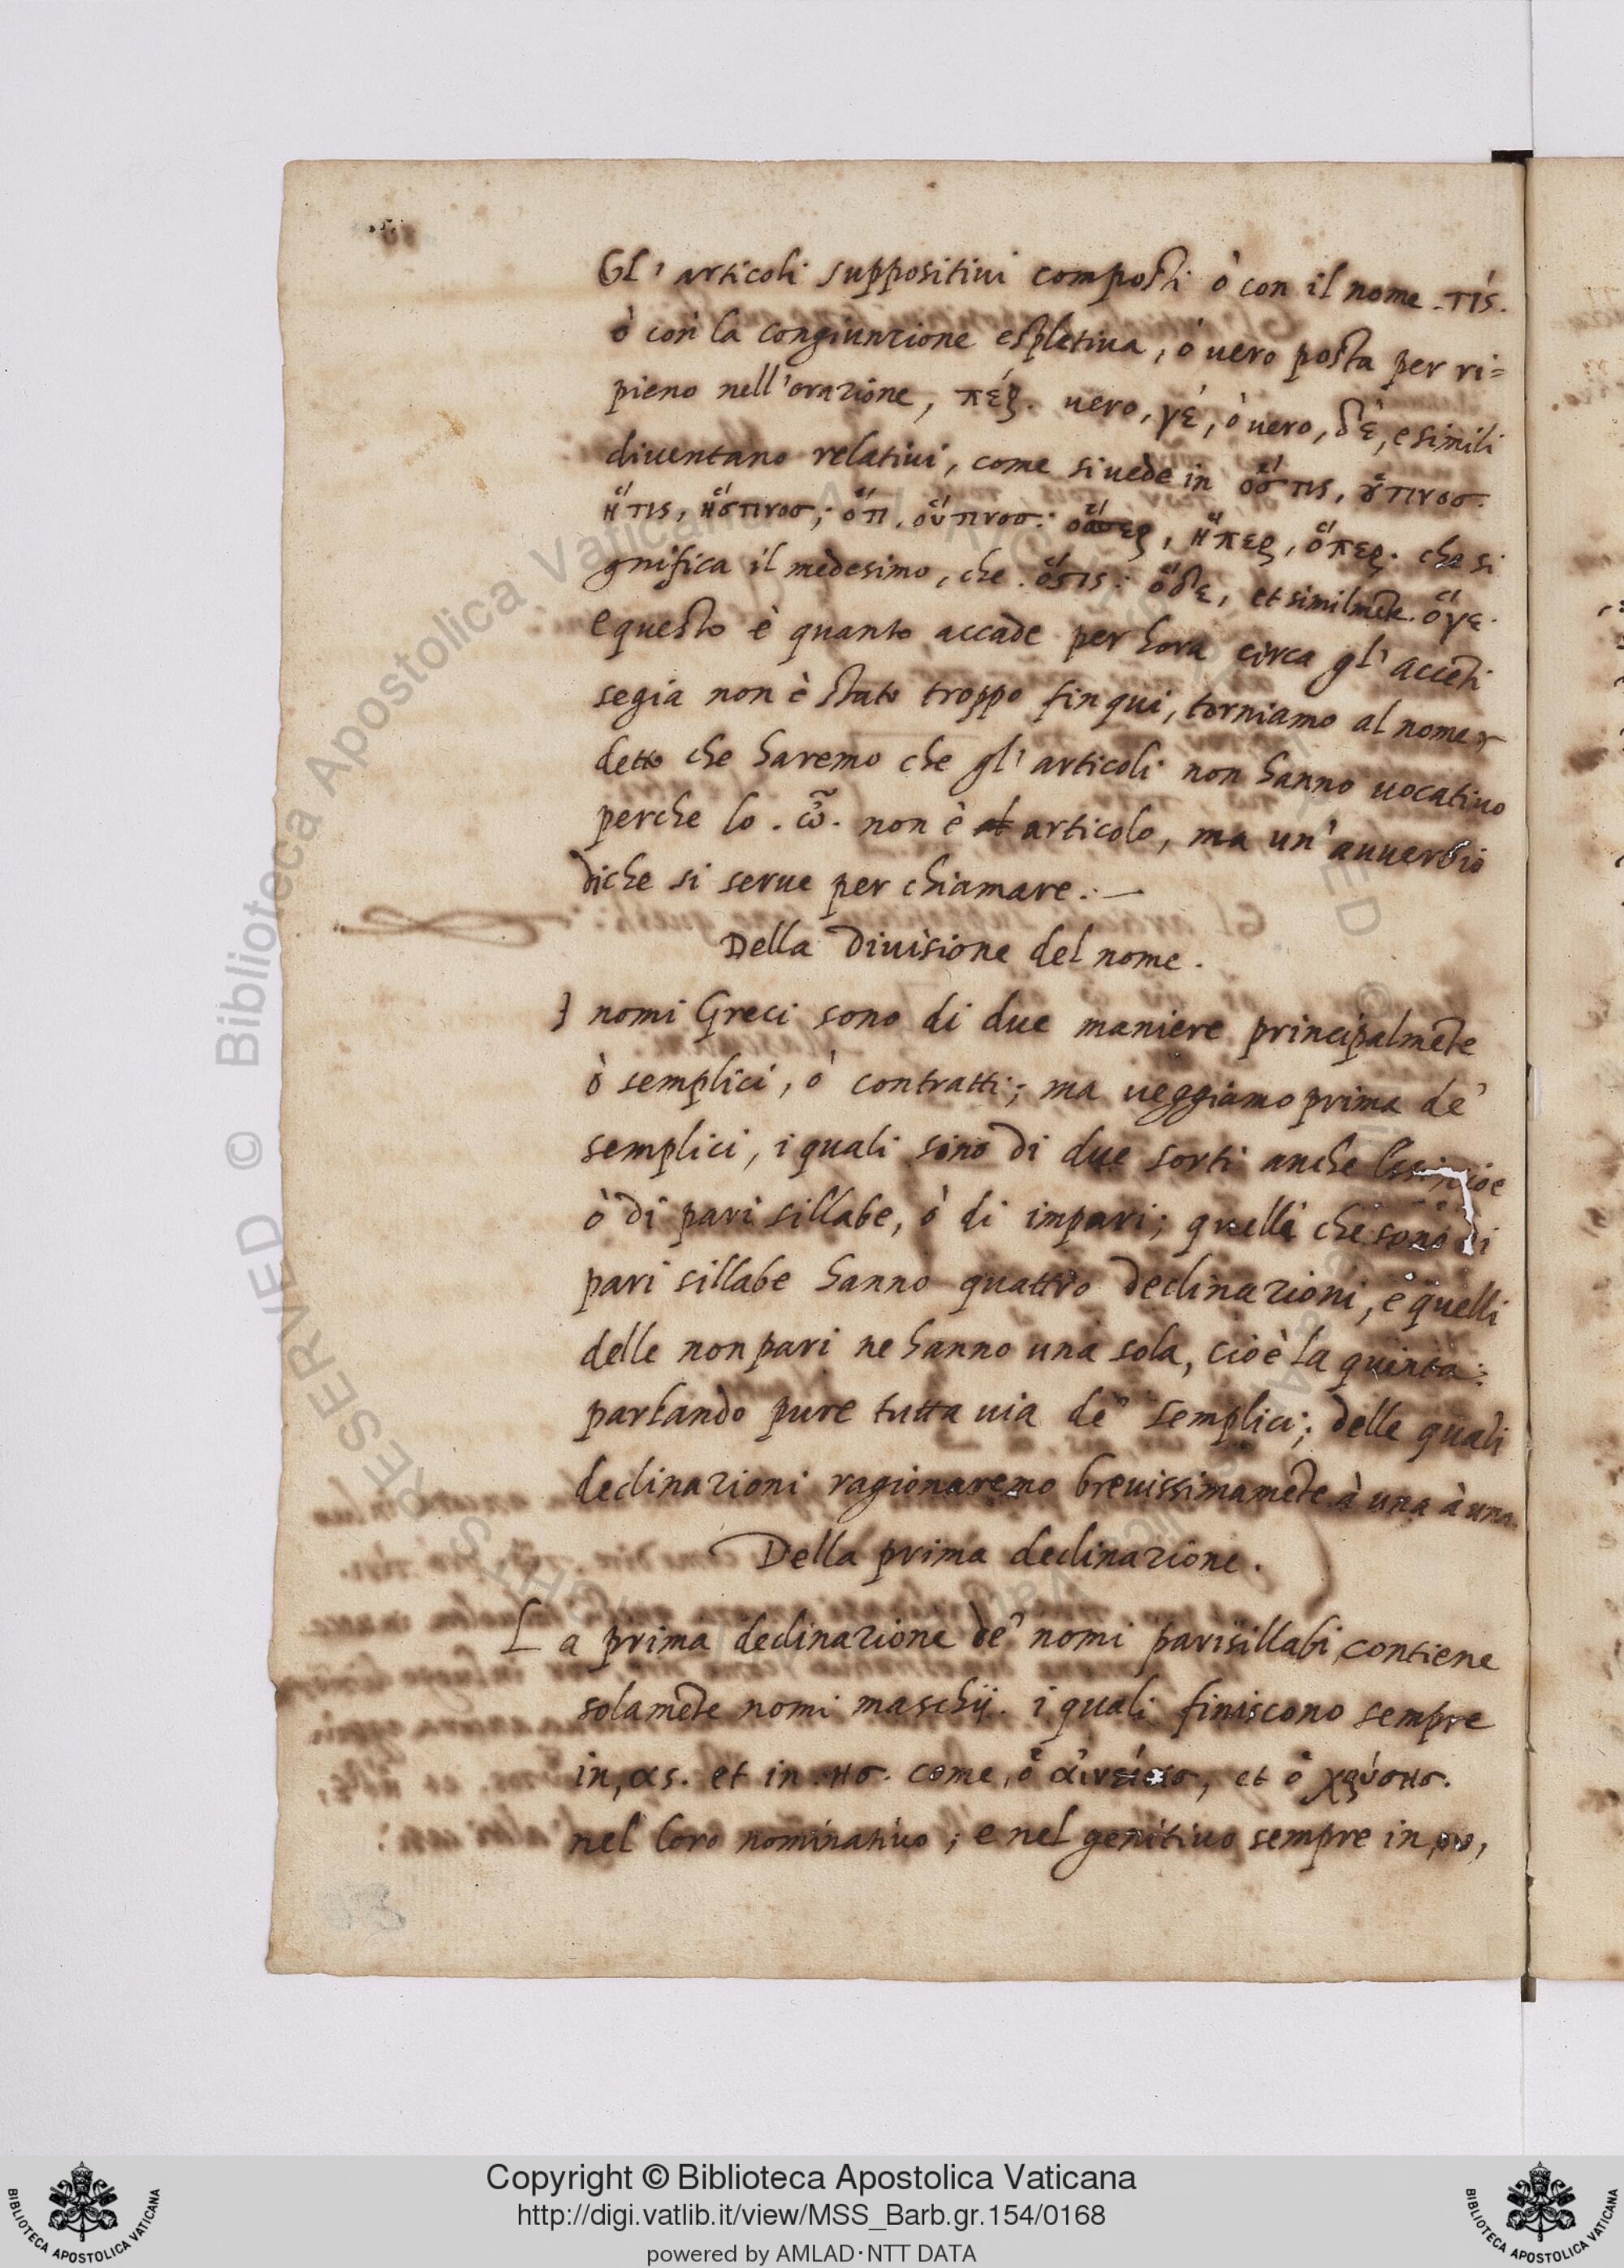 Gl' articoli suppositiui composti ò con il nome . τίς.
ò con la congiunzione espletiua, ò uero posta per ri=
pieno nell'orazione, πέρ. uero, γέ, ò uero, δέ, e simili
diuentano relatiui, come si uede in ὅστις, οὗτινοσ.
ἥτις, ἥστινοσ; ὅτι, οὕτινοσ: ὅσπερ, ἥπερ, ὅπερ. che si
gnifica il medesimo, che . ὅστις: ὅδε, et similmẽte. ὅγε.
e questo è quanto accade per hora circa gl' accẽti
segia non è stato troppo fin qui, torniamo al nome
detto che haremo che gl' articoli non hanno uocatiuo
perche lo . ὦ . non è articolo, ma un' auuerbio
diche si serue per chiamare. —
Della diuisione del nome.
I nomi Greci sono di due maniere principalmẽte
ò semplici, ò contratti; ma ueggiamo prima de'
semplici, i quali sono di due sorti anche
ò di pari sillabe, ò di impari; quelli che sono di
pari sillabe hanno quattro declinazioni, e quelli
delle non pari ne hanno una sola, cioè la quinta:
parlando pure tutta uia de' semplici; delle quali
declinazioni ragionaremo breuissimamẽte à una à una.
Della prima declinazione.
La prima declinazione de' nomi parisillabi contiene
solamẽte nomi maschij. i quali finiscono sempre
in, ας. et in . ησ. come, ὁ αἰνείασ, et ὁ χρύσησ.
nel loro nominatiuo; e nel genitiuo sempre in, ου,
Copyright © Biblioteca Apostolica Vaticana
http://digi.vatlib.it/view/MSS_Barb.gr.154/0168
powered by AMLAD·NTT DATA